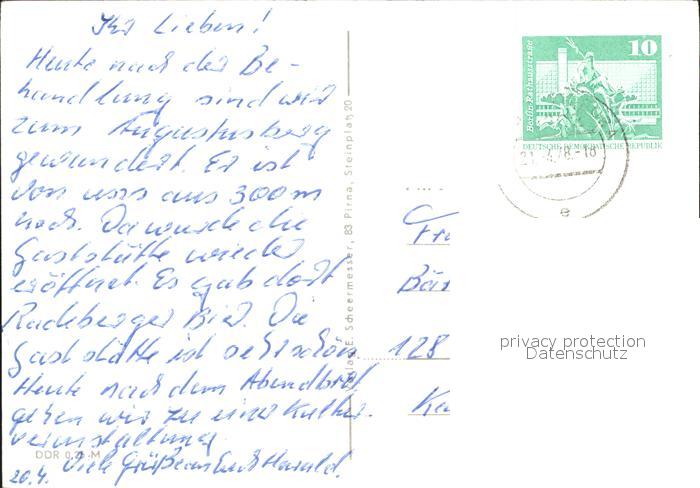 Ihr Lieben!
Heute nach der Be-
handlung sind wir
zum Augustusberg
gewandert. Er ist
von uns aus 300 m
hoch. Da wurde die
Gaststätte wieder
eröffnet. Es gab dort
Radeberger Bier. Die
Gaststätte ist sehr schön.
Heute nach dem Abendbrot
gehen wir zu einer Kultur-
veranstaltung.
20.4. Viele Grüße an Euch Harald.
DDR 0,20 M
E. Scheermesser, 83 Pirna, Steinplatz 20
10
Berlin, Rathausstraße
DEUTSCHE DEMOKRATISCHE REPUBLIK
21.-4.78.-18
e
Fr
Bär
128
privacy protection
Datenschutz